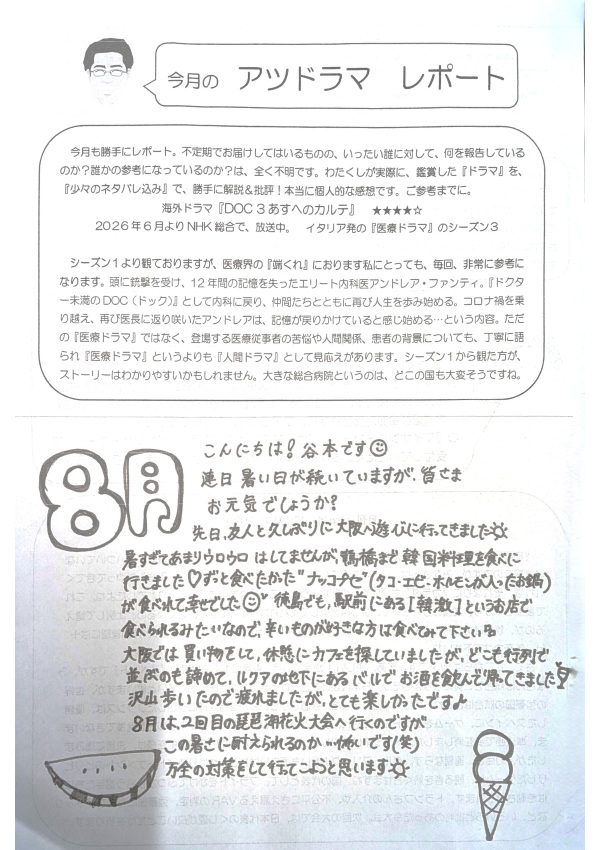 今月の アツドラマ レポート
今月も勝手にレポート。不定期でお届けしてはいるものの、いったい誰に対して、何を報告している
のか？誰かの参考になっているのか？は、全く不明です。わたくしが実際に、鑑賞した『ドラマ』を、
『少々のネタバレ込み』で、勝手に解説＆批評！本当に個人的な感想です。ご参考までに。
海外ドラマ『DOC３あすへのカルテ』 ★★★★☆
２０２６年６月よりNHK総合で、放送中。 イタリア発の『医療ドラマ』のシーズン３
シーズン１より観ておりますが、医療界の『端くれ』におります私にとっても、毎回、非常に参考に
なります。頭に銃撃を受け、12年間の記憶を失ったエリート内科医アンドレア・ファンティ。『ドクタ
ー未満のDOC（ドック）』として内科に戻り、仲間たちとともに再び人生を歩み始める。コロナ禍を乗
り越え、再び医長に返り咲いたアンドレアは、記憶が戻りかけていると感じ始める…という内容。ただ
の『医療ドラマ』ではなく、登場する医療従事者の苦悩や人間関係、患者の背景についても、丁寧に語
られ『医療ドラマ』というよりも『人間ドラマ』として見応えがあります。シーズン１から観た方が、
ストーリーはわかりやすいかもしれません。大きな総合病院というのは、どこの国も大変そうですね。
8月
こんにちは！谷本です☺
連日 暑い日が続いていますが、皆さま
お元気でしょうか？
先日、友人と久しぶりに大阪へ遊びに行ってきました☼
暑すぎてあまりウロウロ はしてませんが、鶴橋まで 韓国料理を食べに
行きました♡ずっと食べたかた"ナッコプセ"(タコ・エビ・ホルモンが入ったお鍋)
が食べれて幸せでした☺ 徳島でも、駅前にある[韓激]というお店で
食べられるみたいなので、辛いものが好きな方は食べてみて下さい
大阪では 買い物をして、休憩にカフェを探していましたが、どこも行列で
並ぶのも諦めて、ルクアの地下にあるバルで お酒を飲んで帰ってきました
沢山歩いたので疲れましたが、とても楽しかったです♪
8月は、2回目の琵琶湖花火大会へ行くのですが
この暑さに耐えられるのか…怖いです(笑)
万全の対策をして行ってこようと思います☼